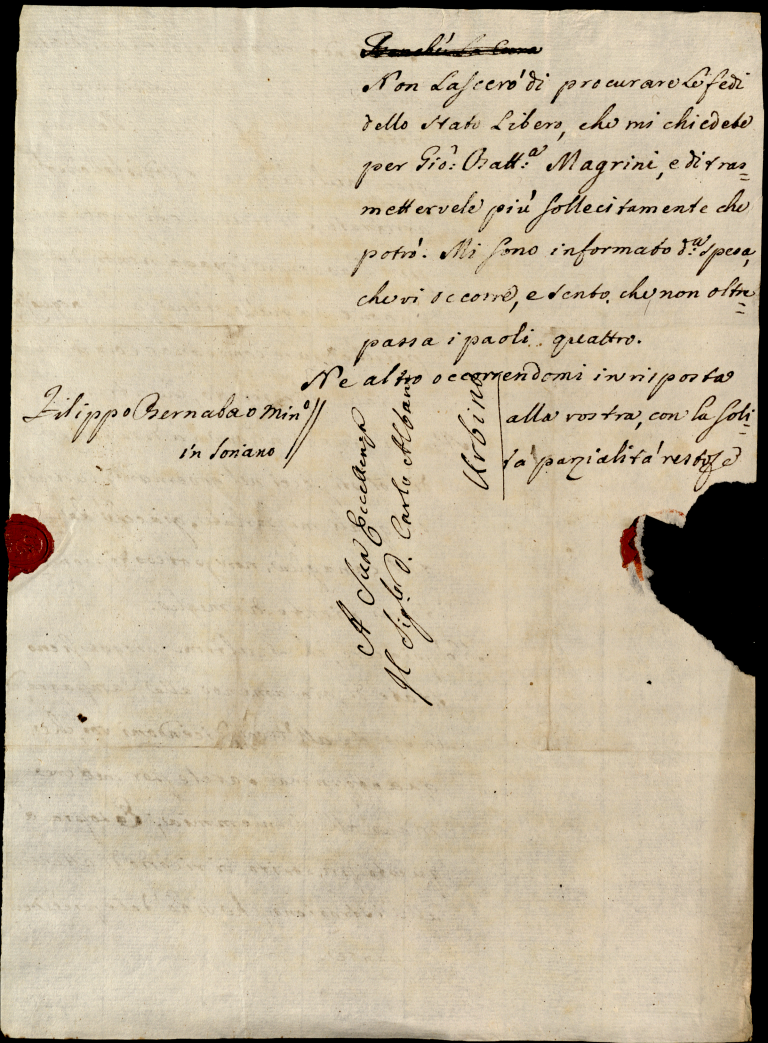 Non lascerò di procurare le fedi
dello stato libero, che mi chiedete
per Gio: Batt:a Magrini, e di tras=
mettervele più sollecitamente che
potrò. Mi sono informato d.a spesa,
che vi occorre, e sento, che non oltre=
passa i paoli quattro.
Ne altro occorrendomi in risposta
alla vostra, con la soli=
ta parzialità resto
Filippo Bernabao Min.o
in Soriano
A Sua Eccellenza
Il Sig.re D. Carlo Albani
Urbino